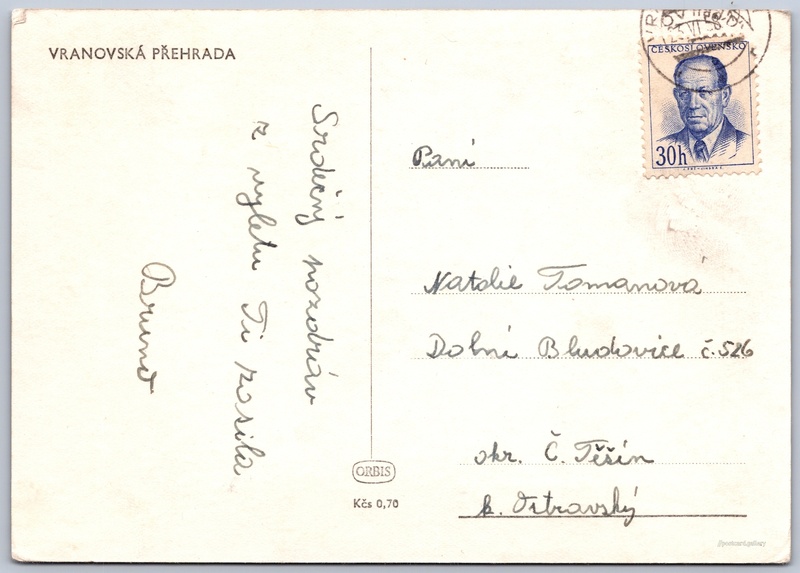 VRANOVSKÁ PŘEHRADA
Srdečný pozdrav
z vyletu Ti zasila
Bruno
ORBIS
Kčs 0,70
ČESKOSLOVENSKO
30h
Paní
Natalie Tomanová
Dolní Bludovice č. 526
okr. Č. Těšín
k. Ostravský